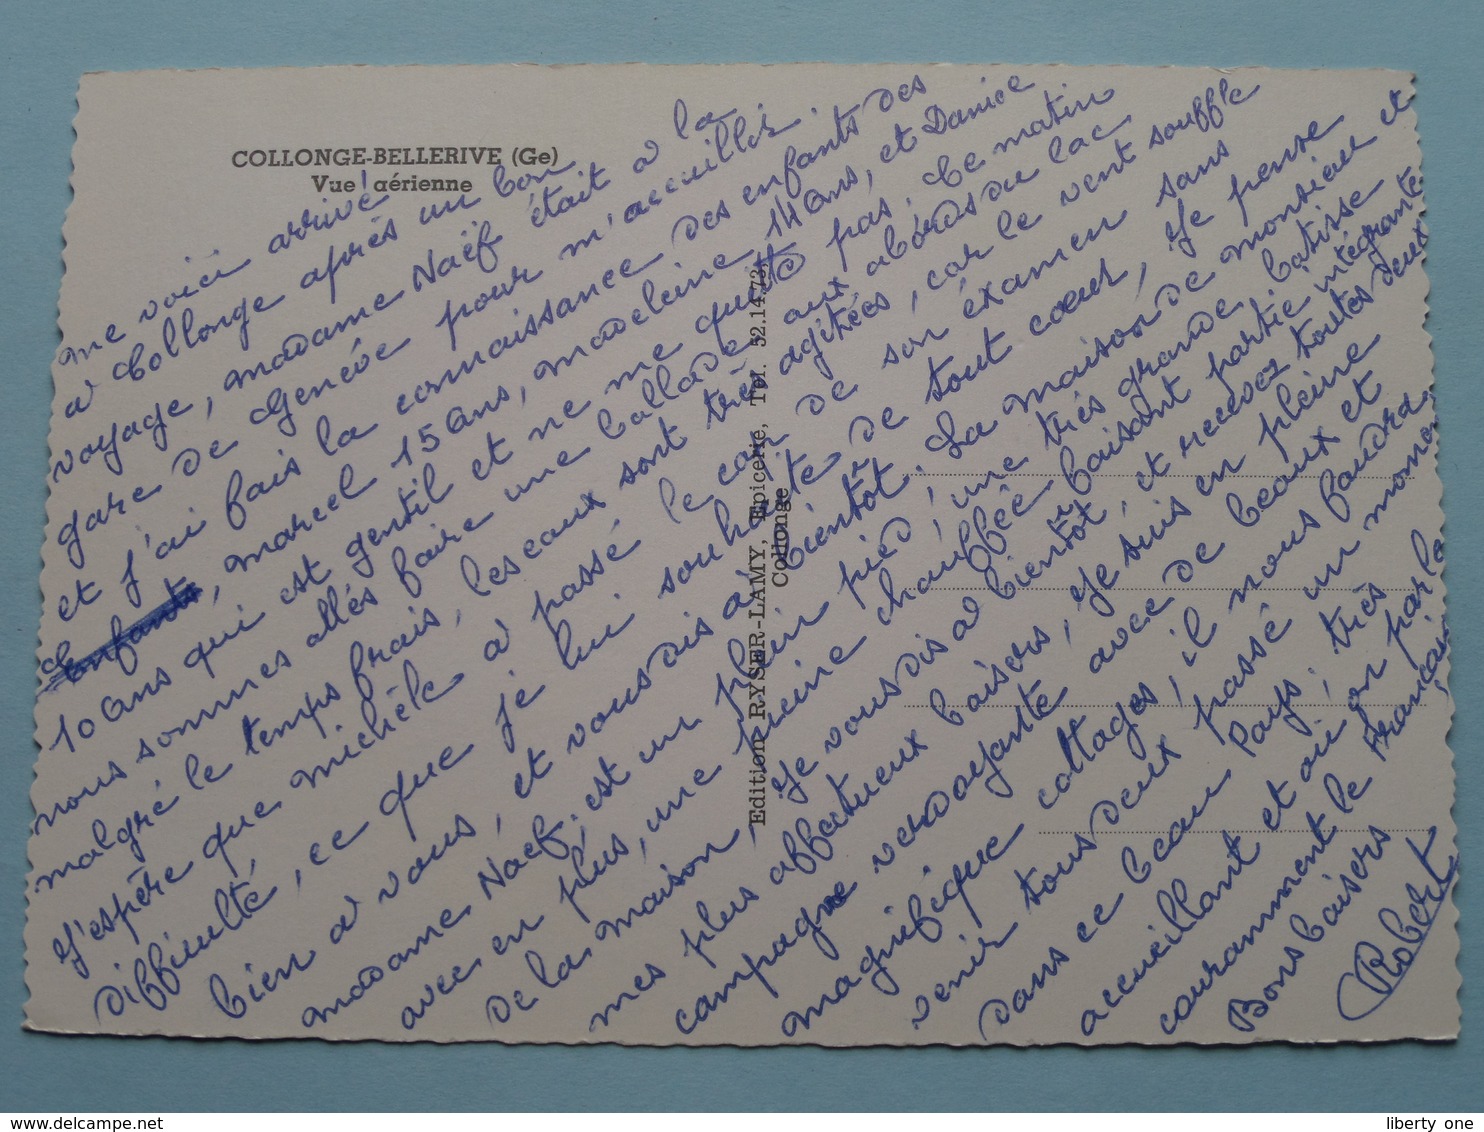 COLLONGE-BELLERIVE (Ge)
Vue aérienne
Edition RYSER-LAMY, Epicerie, Tél. 52.14.73,
Collonge
me voici arrivé
a Collonge aprés un bon
voyage, madame Naëf était a la
gare de Genéve pour m'accueillir.
et j'ai fais la connaissance des enfants des
enfants, marcel 15 ans, madeleine 14 ans, et Danice
10 ans qui est gentil et ne me quitte pas. Ce matin
nous sommes allés faire une ballade aux abords du lac
malgré le temps frais, les eaux sont trés agitées, car le vent souffle
J'espère que michèle a passé le cap de son éxamen sans
difficulté, ce que je lui souhaite de tout cœur, Je pense
bien a vous, et vous dis a bientôt. La maison de monsieur et
madame Naëf, est un plein pied, une trés grande batisse
avec en plus, une piscine chauffée faisant partie intégrante
de la maison, Je vous dis a bientôt, et recevez toutes deux
mes plus affectueux baisers, Je suis en pleine
campagne verdoyante avec de beaux et
magnifique cottages, il nous faudra
venir tous deux passé un moment
dans ce beau Pays, très
accueillant et où on parle
couramment le Français
Bons baisers
Robert
liberty one